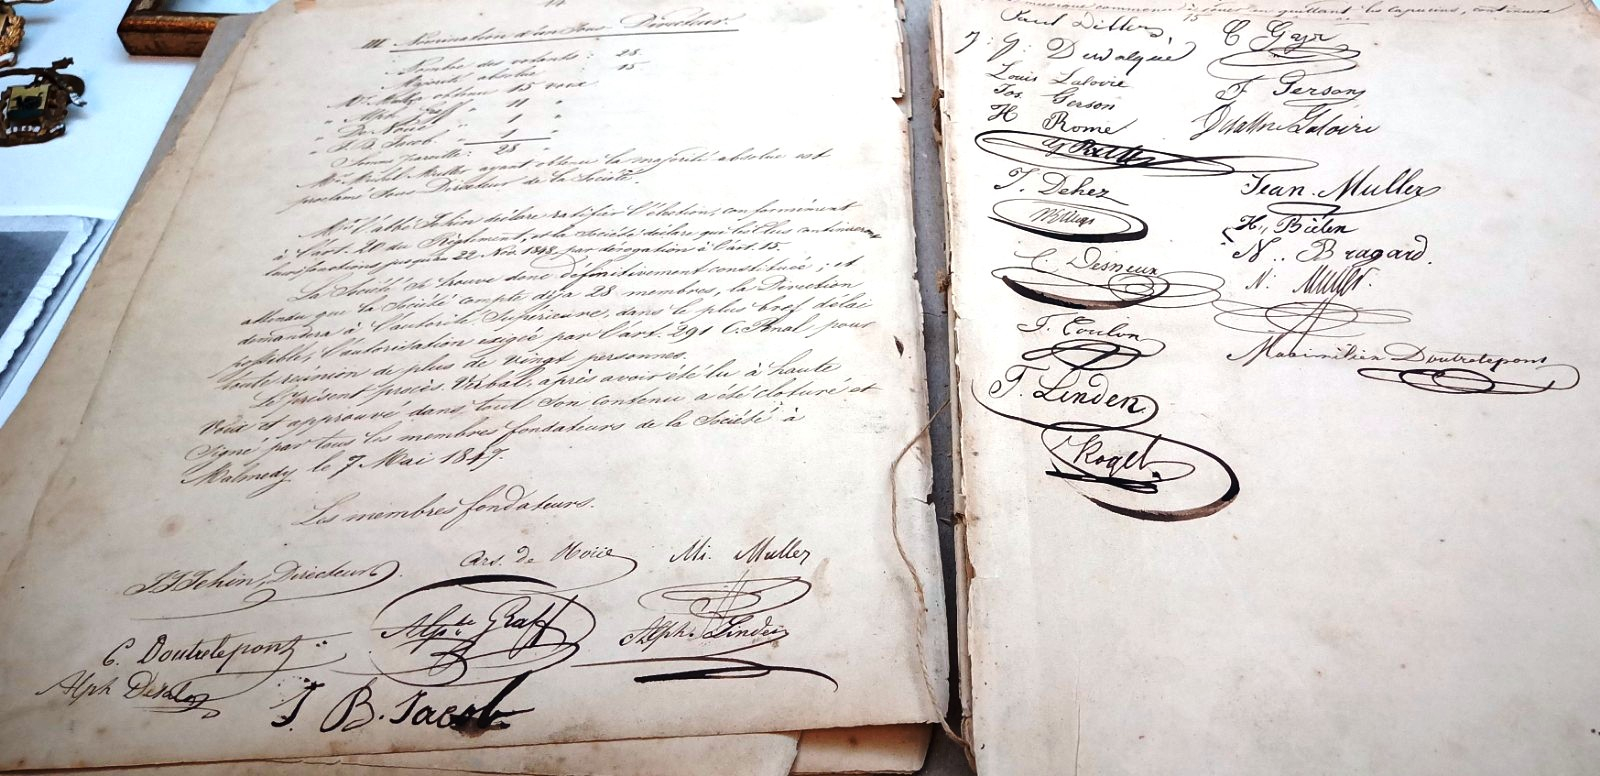 III Nomination d'un Sous Directeur
Nombre des votants : 28
Majorité absolue 15
Mr. obtenu 15 voix
" Alph. Graff " 11 "
" De Nouë " 1 "
" J. B. Jacob. 1 "
Somme pareille : 28
Mr. Michel Muller ayant obtenu la majorité absolue est
proclamé Sous Directeur de la Société.
Mr. l'abbé Tehin déclare ratifier l'élection, conformément
à l'art. 20 du Réglement, et la Société déclare que les Elus continueront
leurs fonctions jusqu'au 22 Nov. 1848, par dérogation à l'art. 15.
La Société se trouve donc définitivement constituée ; et
attendu que la Société compte déjà 28 membres, la Direction
demandera à l'autorité Supérieure, dans le plus bref délai
possible, l'autorisation exigée par l'art. 291 C. Pénal pour
toute réunion de plus de vingt personnes.
Le présent procès Verbal, après avoir été lu à haute
voix et approuvé dans tout Son contenu a été cloturé et
Signé par tous les membres fondateurs de la Société à
Malmedy le 7 Mai 1847.
Les membres fondateurs.
J J Tehin, Directeur. Ars. de Noüe Mi. Muller
C. Doutrelepont Alph. Graff Alph. Linden
Alph
J. B. Jacob
musique commence à jouer en quittant les capucins, continuera
15
Paul C
J. G. F. Gerson
Louis Laloire
Jos. Gerson
H Rome
T. Dehez Jean Muller
H. Bielen
C. Desneux N. Bragard.
N. Muller.
T. Coulon
Maximilien Doutrelepont
T. Linden
Roget